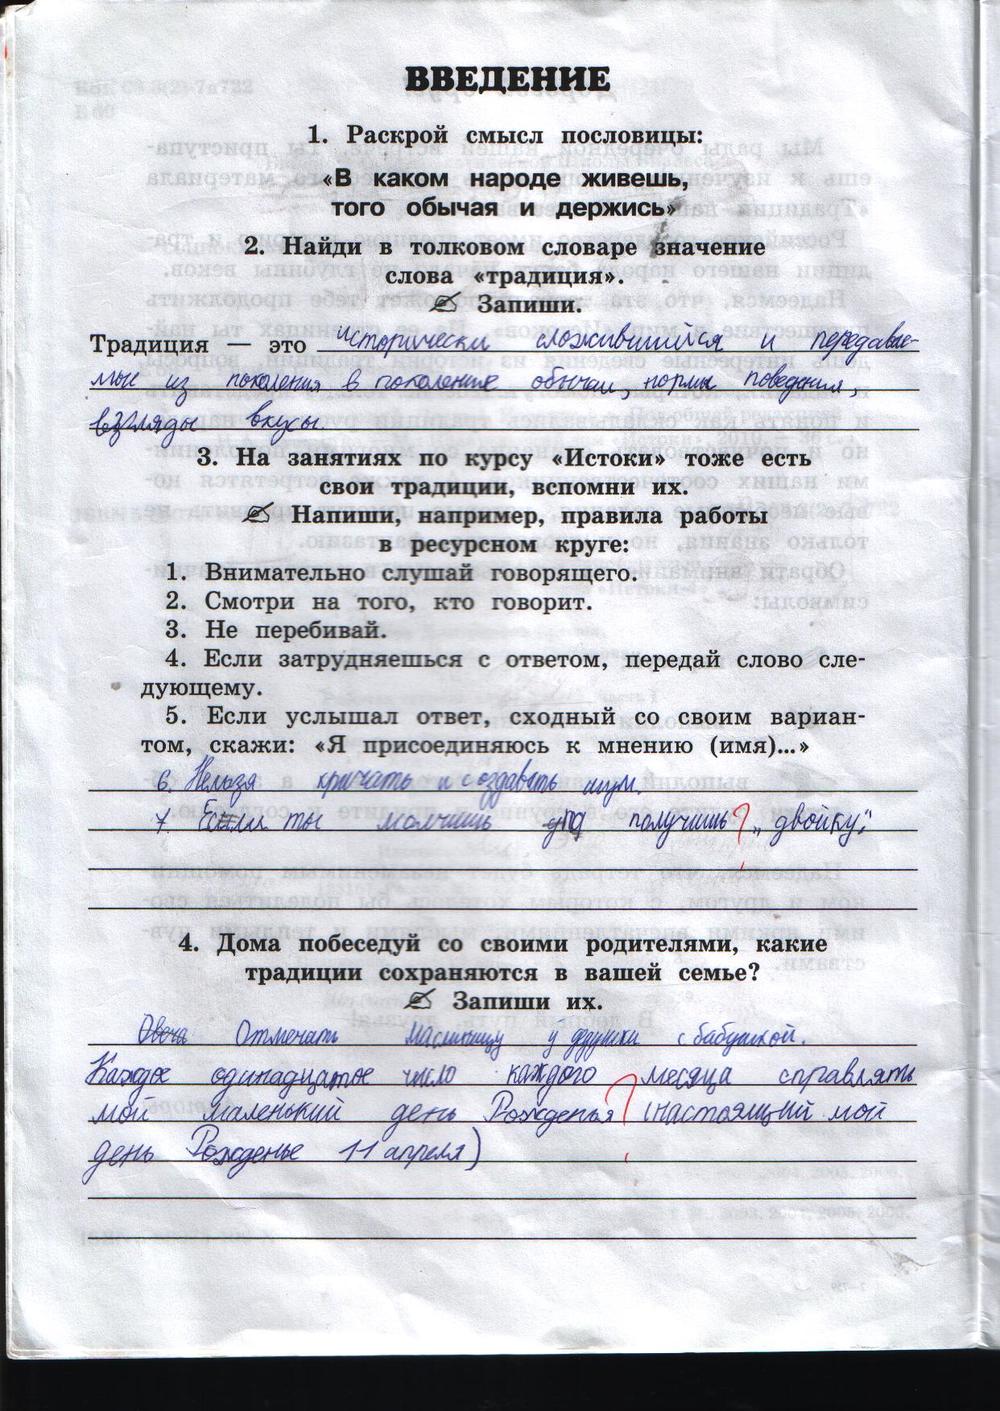 ВВЕДЕНИЕ
1. Раскрой смысл пословицы:
«В каком народе живешь,
того обычая и держись»
2. Найди в толковом словаре значение
слова «традиция».
Запиши.
Традиция — это исторически сложившийся и передавае-
мые из поколения в поколение обычаи, нормы поведения,
взгляды вкусы.
3. На занятиях по курсу «Истоки» тоже есть
свои традиции, вспомни их.
Напиши, например, правила работы
в ресурсном круге:
1. Внимательно слушай говорящего.
2. Смотри на того, кто говорит.
3. Не перебивай.
4. Если затрудняешься с ответом, передай слово сле-
дующему.
5. Если услышал ответ, сходный со своим вариан-
том, скажи: «Я присоединяюсь к мнению (имя)...»
6. Нельзя кричать и создавать шум.
7. Если ты молчишь получишь? „двойку;"
4. Дома побеседуй со своими родителями, какие
традиции сохраняются в вашей семье?
Запиши их.
Отмечать Маслиницу у дедушки с бабушкой.
Каждое одинадцатое число каждого месяца справлять
мой маленький день Рожденья? (настоящий мой
день Рожденье 11 апреля)